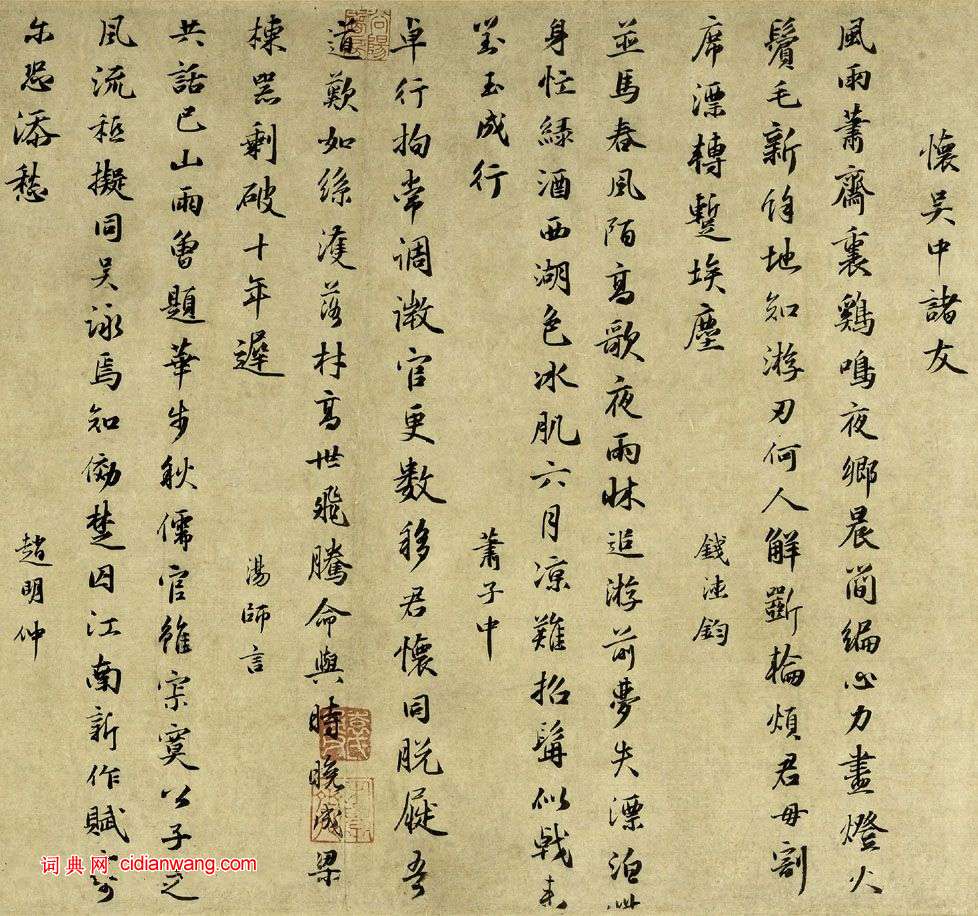 懷吳中諸友
風雨蕭齋裏鷄鳴夜鄉晨簡編心力盡燈火
鬢毛新餘地知游刃何人解斲輪煩君毋割
席漂轉蹔埃塵
錢達鈞
並馬春風陌高歌夜雨牀追游前夢失漂泊此
身忙綠酒西湖色冰肌六月凉難招髯似戟未
對玉成行
蕭子中
卓行拘常調微官更數移君懷同脱屣吾
道歎如絲濩落材高世飛騰命與時晚成梁
棟器剩破十年遲
湯師言
共話巴山雨曾題華步秋儒官雖寂寞公子足
風流秪擬同吳詠焉知効楚囚江南新作賦
尓恐添愁
趙明仲
词典网 cidianwang.com